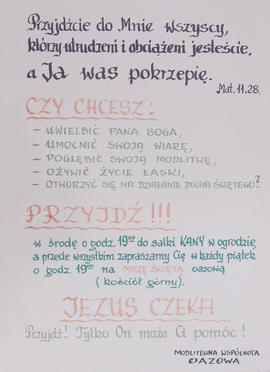 Przyjdźcie do Mnie wszyscy,
którzy utrudzeni i obciążeni jesteście,
a Ja was pokrzepię.
Mat. 11,28.
CZY CHCESZ:
- UWIELBIĆ PANA BOGA,
- UMOCNIĆ SWOJĄ WIARĘ,
- POGŁĘBIĆ SWOJĄ MODLITWĘ,
- OŻYWIĆ ŻYCIE ŁASKI,
- OTWORZYĆ SIĘ NA DZIAŁANIE DUCHA ŚWIĘTEGO?
PRZYJDŹ!!!
w środę o godz. 19⁰⁰ do salki KANY w ogrodzie
a przede wszystkim zapraszamy Cię w każdy piątek
o godz. 19⁰⁰ na MSZĘ ŚWIĘTĄ oazową
(kościół górny).
JEZUS CZEKA
Przyjdź! Tylko On może Ci pomóc!
MODLITEWNA WSPÓLNOTA
OAZOWA